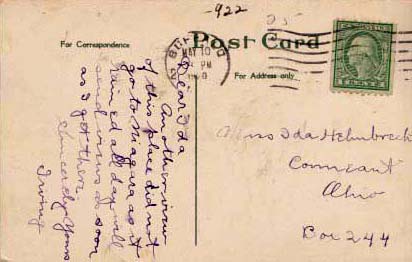 -922
25
For Correspondence
Post Card
For Address only
BUFFALO
MAY 10
PM
Dear Ida
Another view
of this place did not
go to Niagara as it
rained all day will
send views as soon
as I get there
Sincerely Yours
Irving
Miss Ida Helmbreck
Conneaut
Ohio
Box 244